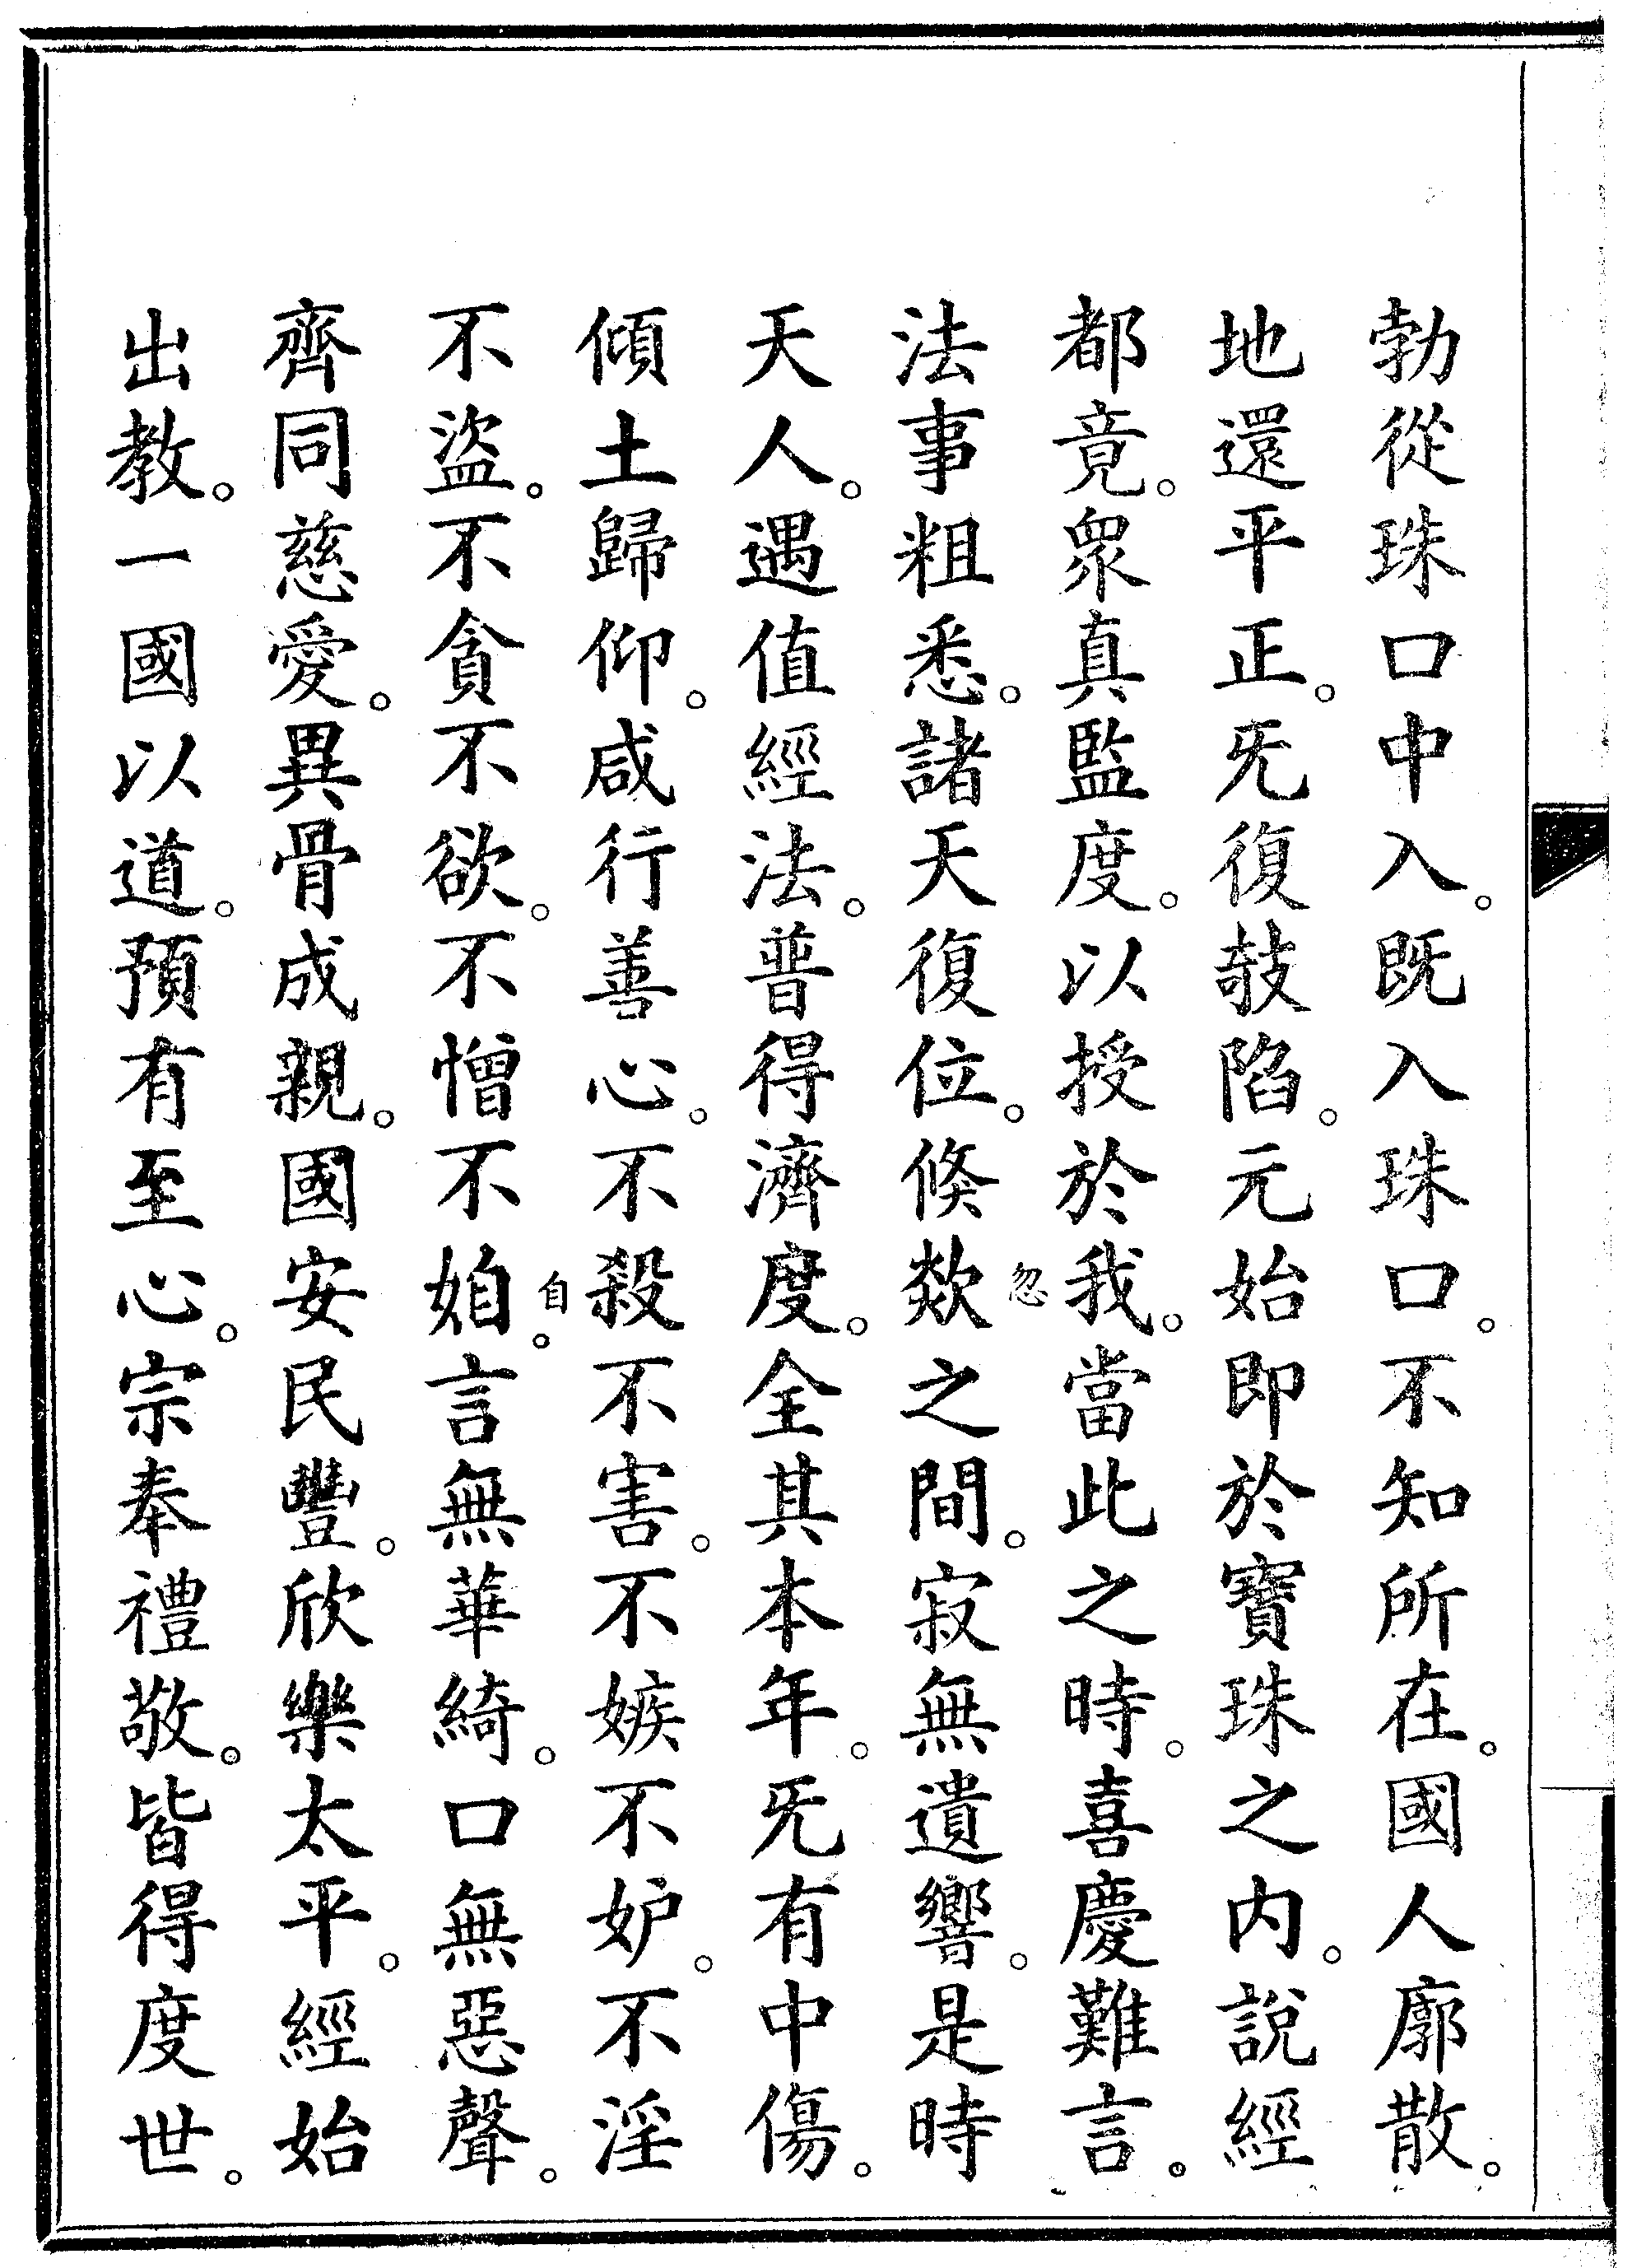 勃從珠口中入。既入珠口。不知所在。國人廓散。
地還平正。旡復攲陷。元始即於寶珠之内。說經
都竟。眾真監度。以授於我。當此之時。喜慶難言。
法事粗悉。諸天復位。倐欻忽之間。寂無遺響。是時
天人。遇值經法。普得濟度。全其本年。旡有中傷。
傾土歸仰。咸行善心。不殺不害。不嫉不妒。不淫
不盜。不貪不欲。不憎不㜝自。言無華綺。口無惡聲。
齊同慈愛。異骨成親。國安民豐。欣樂太平。經始
出教。一國以道。預有至心。宗奉禮敬。皆得度世。